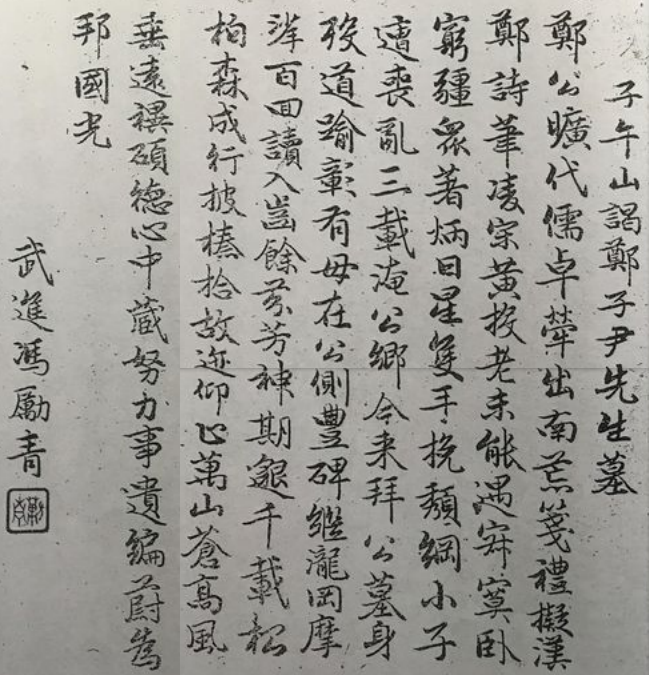 子午山謁鄭子尹先生墓
鄭公曠代儒卓犖出南荒箋禮擬漢
鄭詩筆凌宋黃投老未能遇寂寞臥
窮疆眾著炳日星隻手挽頹綱小子
遭喪亂三載淹公鄉今来拜公墓身
歿道踰彰有母在公側豐碑繼瀧岡摩
挲百回讀入齒餘芬芳神期邈千載松
柏森成行披榛拾故迹仰止萬山蒼高風
垂遠禩碩德心中藏努力事遺編蔚為
邦國光
武進馮勵青